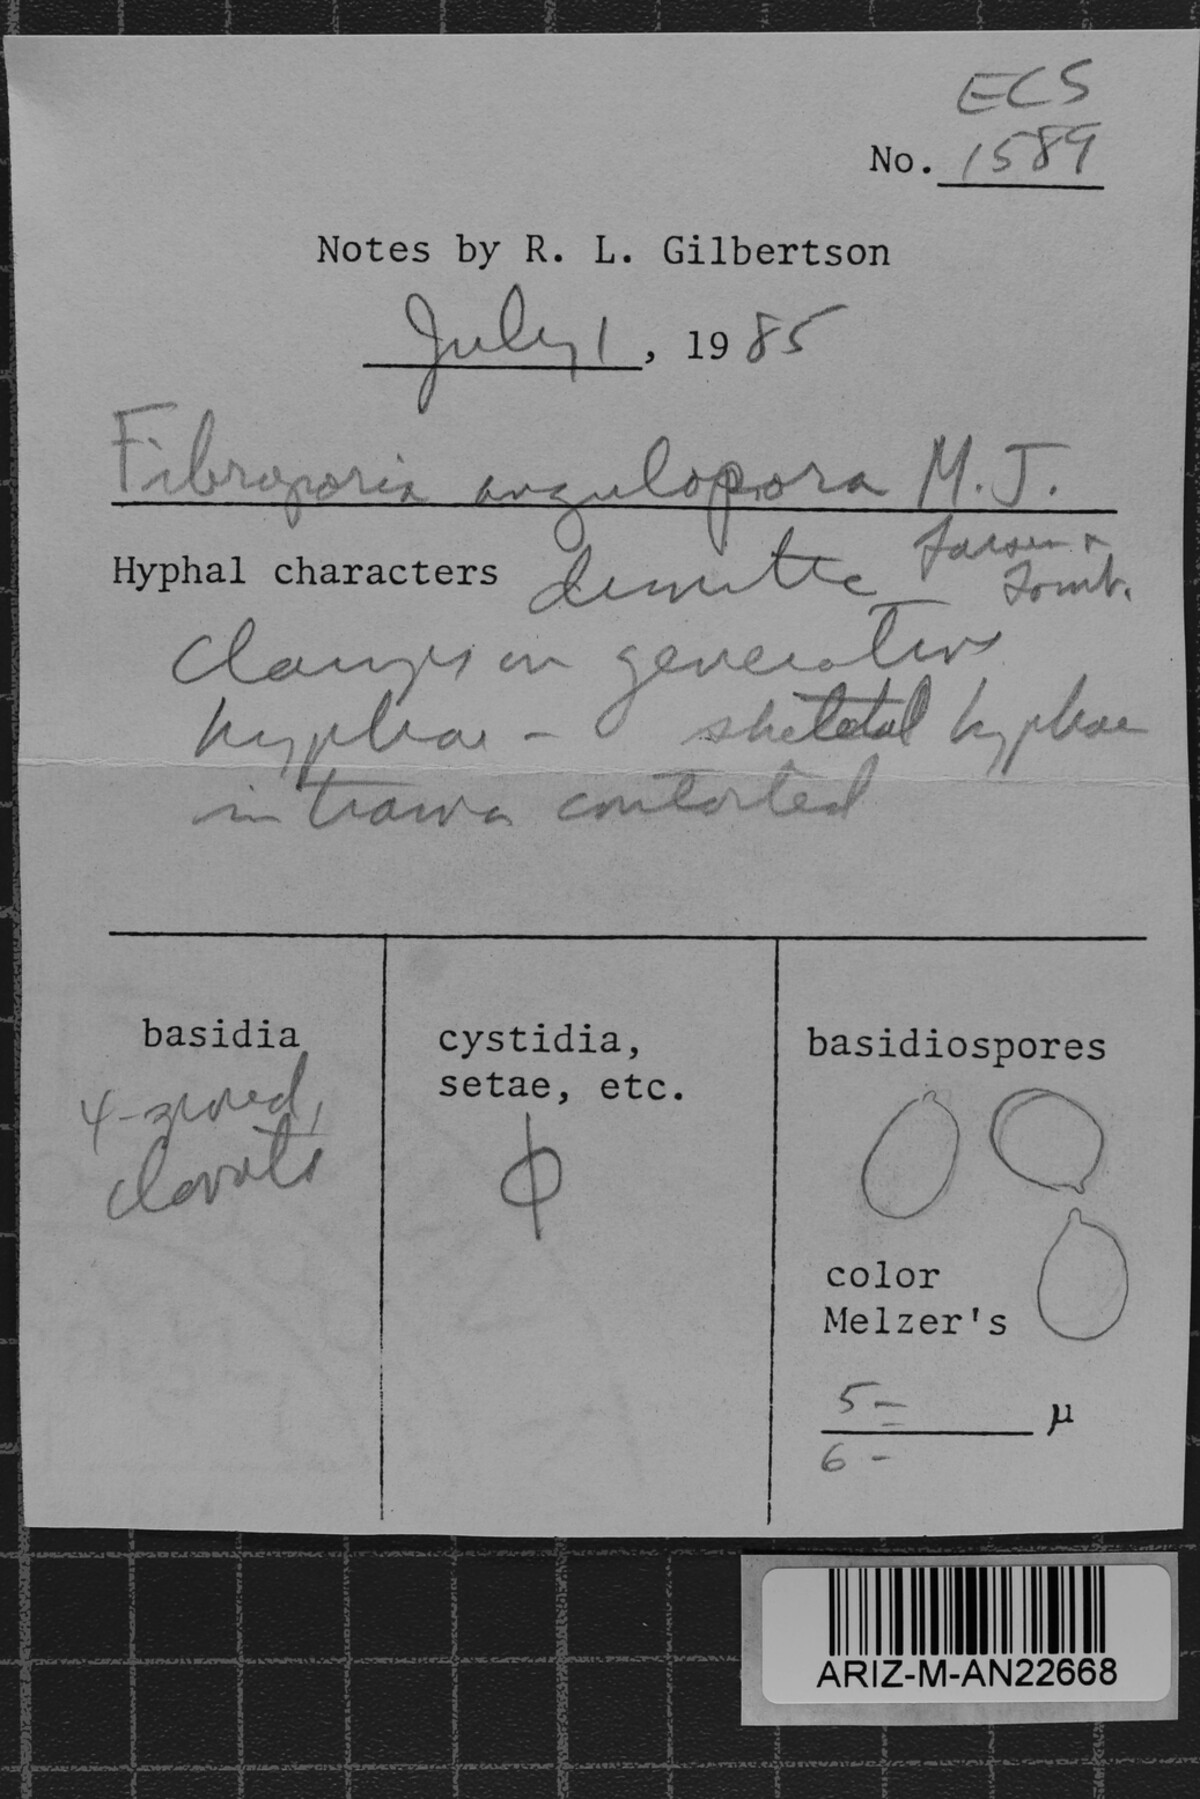 ECS
No. 1589
Notes by R. L. Gilbertson
July 1, 1985
Fibroporia angulopora M. J.
Larsen &
Lomb.
Hyphal characters dimitic
clamps on generative
hyphae - skeletal hyphae
in trama contorted
basidia
4-spored,
clavate
cystidia,
setae, etc.
φ
basidiospores
color
Melzer's
5 - μ
6 -
ARIZ-M-AN22668